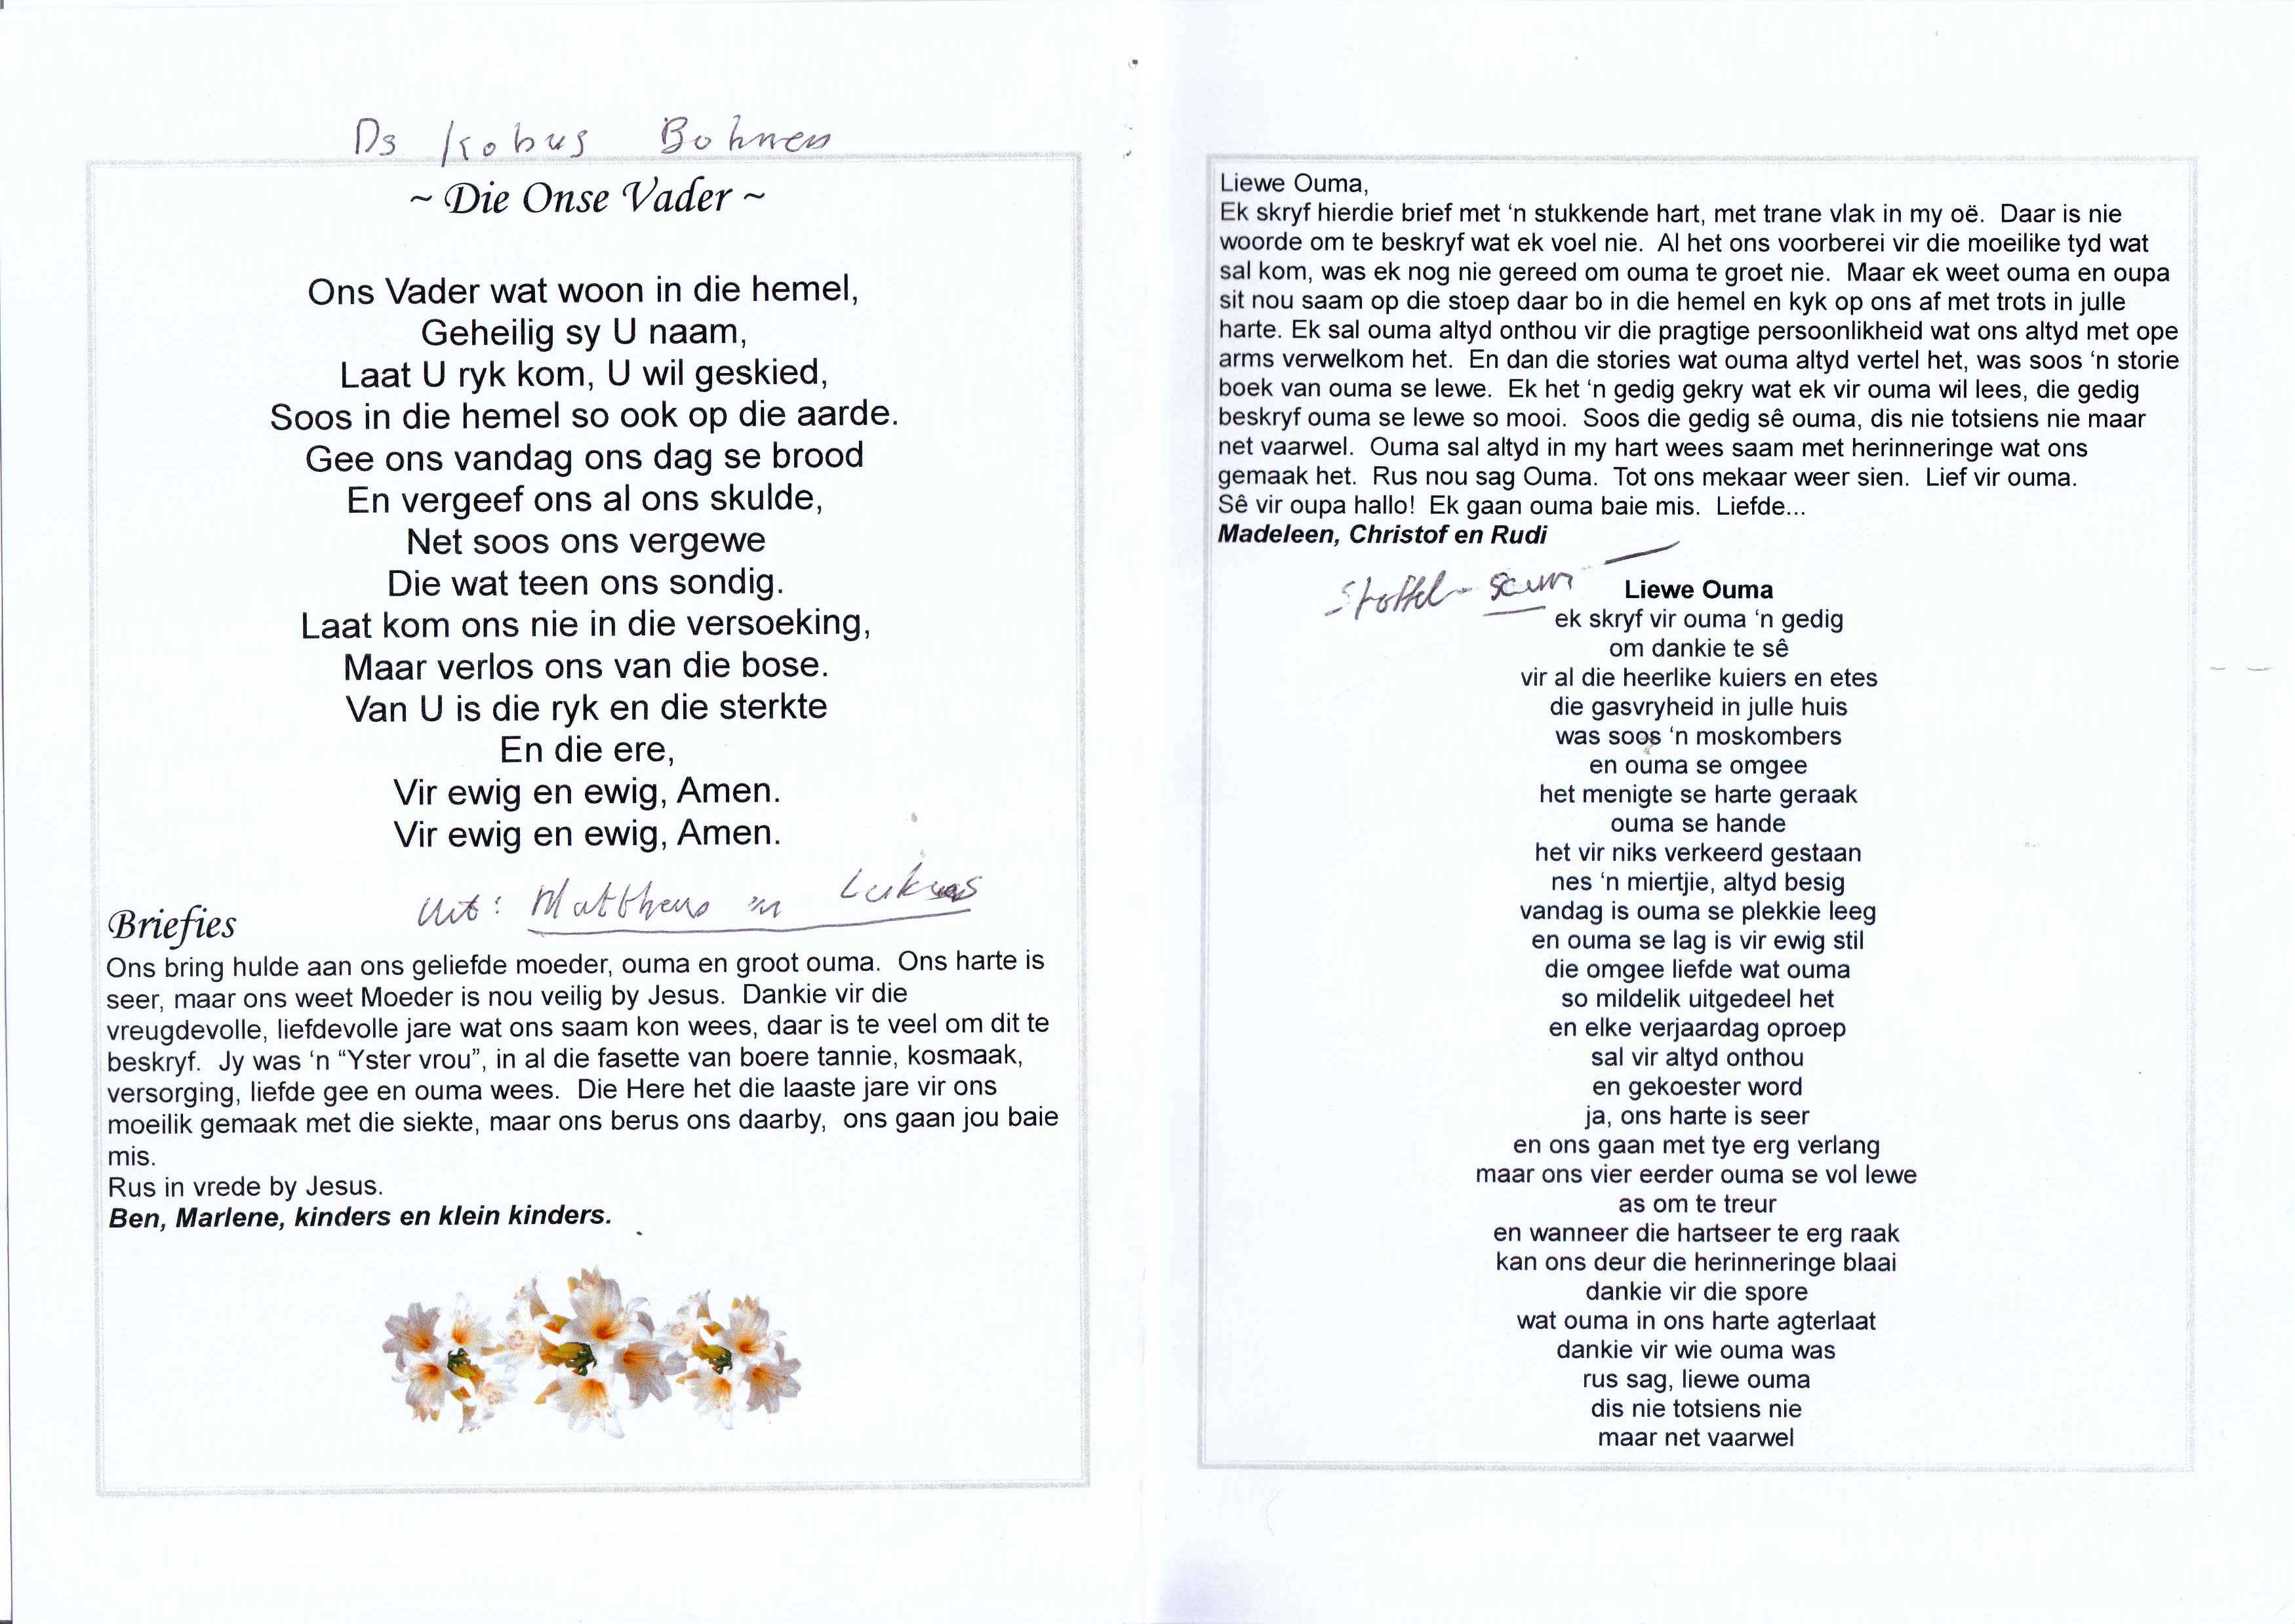 Ds Kobus Bohnen
~ Die Onse Vader ~
Ons Vader wat woon in die hemel,
Geheilig sy U naam,
Laat U ryk kom, U wil geskied,
Soos in die hemel so ook op die aarde.
Gee ons vandag ons dag se brood
En vergeef ons al ons skulde,
Net soos ons vergewe
Die wat teen ons sondig.
Laat kom ons nie in die versoeking,
Maar verlos ons van die bose.
Van U is die ryk en die sterkte
En die ere,
Vir ewig en ewig, Amen.
Vir ewig en ewig, Amen.
Uit: Mattheus en Lukas
Briefies
Ons bring hulde aan ons geliefde moeder, ouma en groot ouma.  Ons harte is
seer, maar ons weet Moeder is nou veilig by Jesus.  Dankie vir die
vreugdevolle, liefdevolle jare wat ons saam kon wees, daar is te veel om dit te
beskryf.  Jy was ‘n “Yster vrou”, in al die fasette van boere tannie, kosmaak,
versorging, liefde gee en ouma wees.  Die Here het die laaste jare vir ons
moeilik gemaak met die siekte, maar ons berus ons daarby,  ons gaan jou baie
mis.
Rus in vrede by Jesus.
Ben, Marlene, kinders en klein kinders.
Liewe Ouma,
Ek skryf hierdie brief met ‘n stukkende hart, met trane vlak in my oë.  Daar is nie
woorde om te beskryf wat ek voel nie.  Al het ons voorberei vir die moeilike tyd wat
sal kom, was ek nog nie gereed om ouma te groet nie.  Maar ek weet ouma en oupa
sit nou saam op die stoep daar bo in die hemel en kyk op ons af met trots in julle
harte. Ek sal ouma altyd onthou vir die pragtige persoonlikheid wat ons altyd met ope
arms verwelkom het.  En dan die stories wat ouma altyd vertel het, was soos ‘n storie
boek van ouma se lewe.  Ek het ‘n gedig gekry wat ek vir ouma wil lees, die gedig
beskryf ouma se lewe so mooi.  Soos die gedig sê ouma, dis nie totsiens nie maar
net vaarwel.  Ouma sal altyd in my hart wees saam met herinneringe wat ons
gemaak het.  Rus nou sag Ouma.  Tot ons mekaar weer sien.  Lief vir ouma.
Sê vir oupa hallo!  Ek gaan ouma baie mis.  Liefde...
Madeleen, Christof en Rudi
Stoffel -
Liewe Ouma
ek skryf vir ouma ‘n gedig
om dankie te sê
vir al die heerlike kuiers en etes
die gasvryheid in julle huis
was soos ‘n moskombers
en ouma se omgee
het menigte se harte geraak
ouma se hande
het vir niks verkeerd gestaan
nes ‘n miertjie, altyd besig
vandag is ouma se plekkie leeg
en ouma se lag is vir ewig stil
die omgee liefde wat ouma
so mildelik uitgedeel het
en elke verjaardag oproep
sal vir altyd onthou
en gekoester word
ja, ons harte is seer
en ons gaan met tye erg verlang
maar ons vier eerder ouma se vol lewe
as om te treur
en wanneer die hartseer te erg raak
kan ons deur die herinneringe blaai
dankie vir die spore
wat ouma in ons harte agterlaat
dankie vir wie ouma was
rus sag, liewe ouma
dis nie totsiens nie
maar net vaarwel